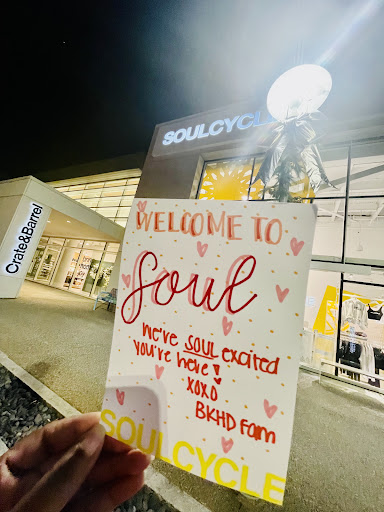 SOULCYCLE
Crate&Barrel
WELCOME TO
Soul
We're SOUL excited
You're here!
XOXO
BKHD Fam
SOULCYCLE